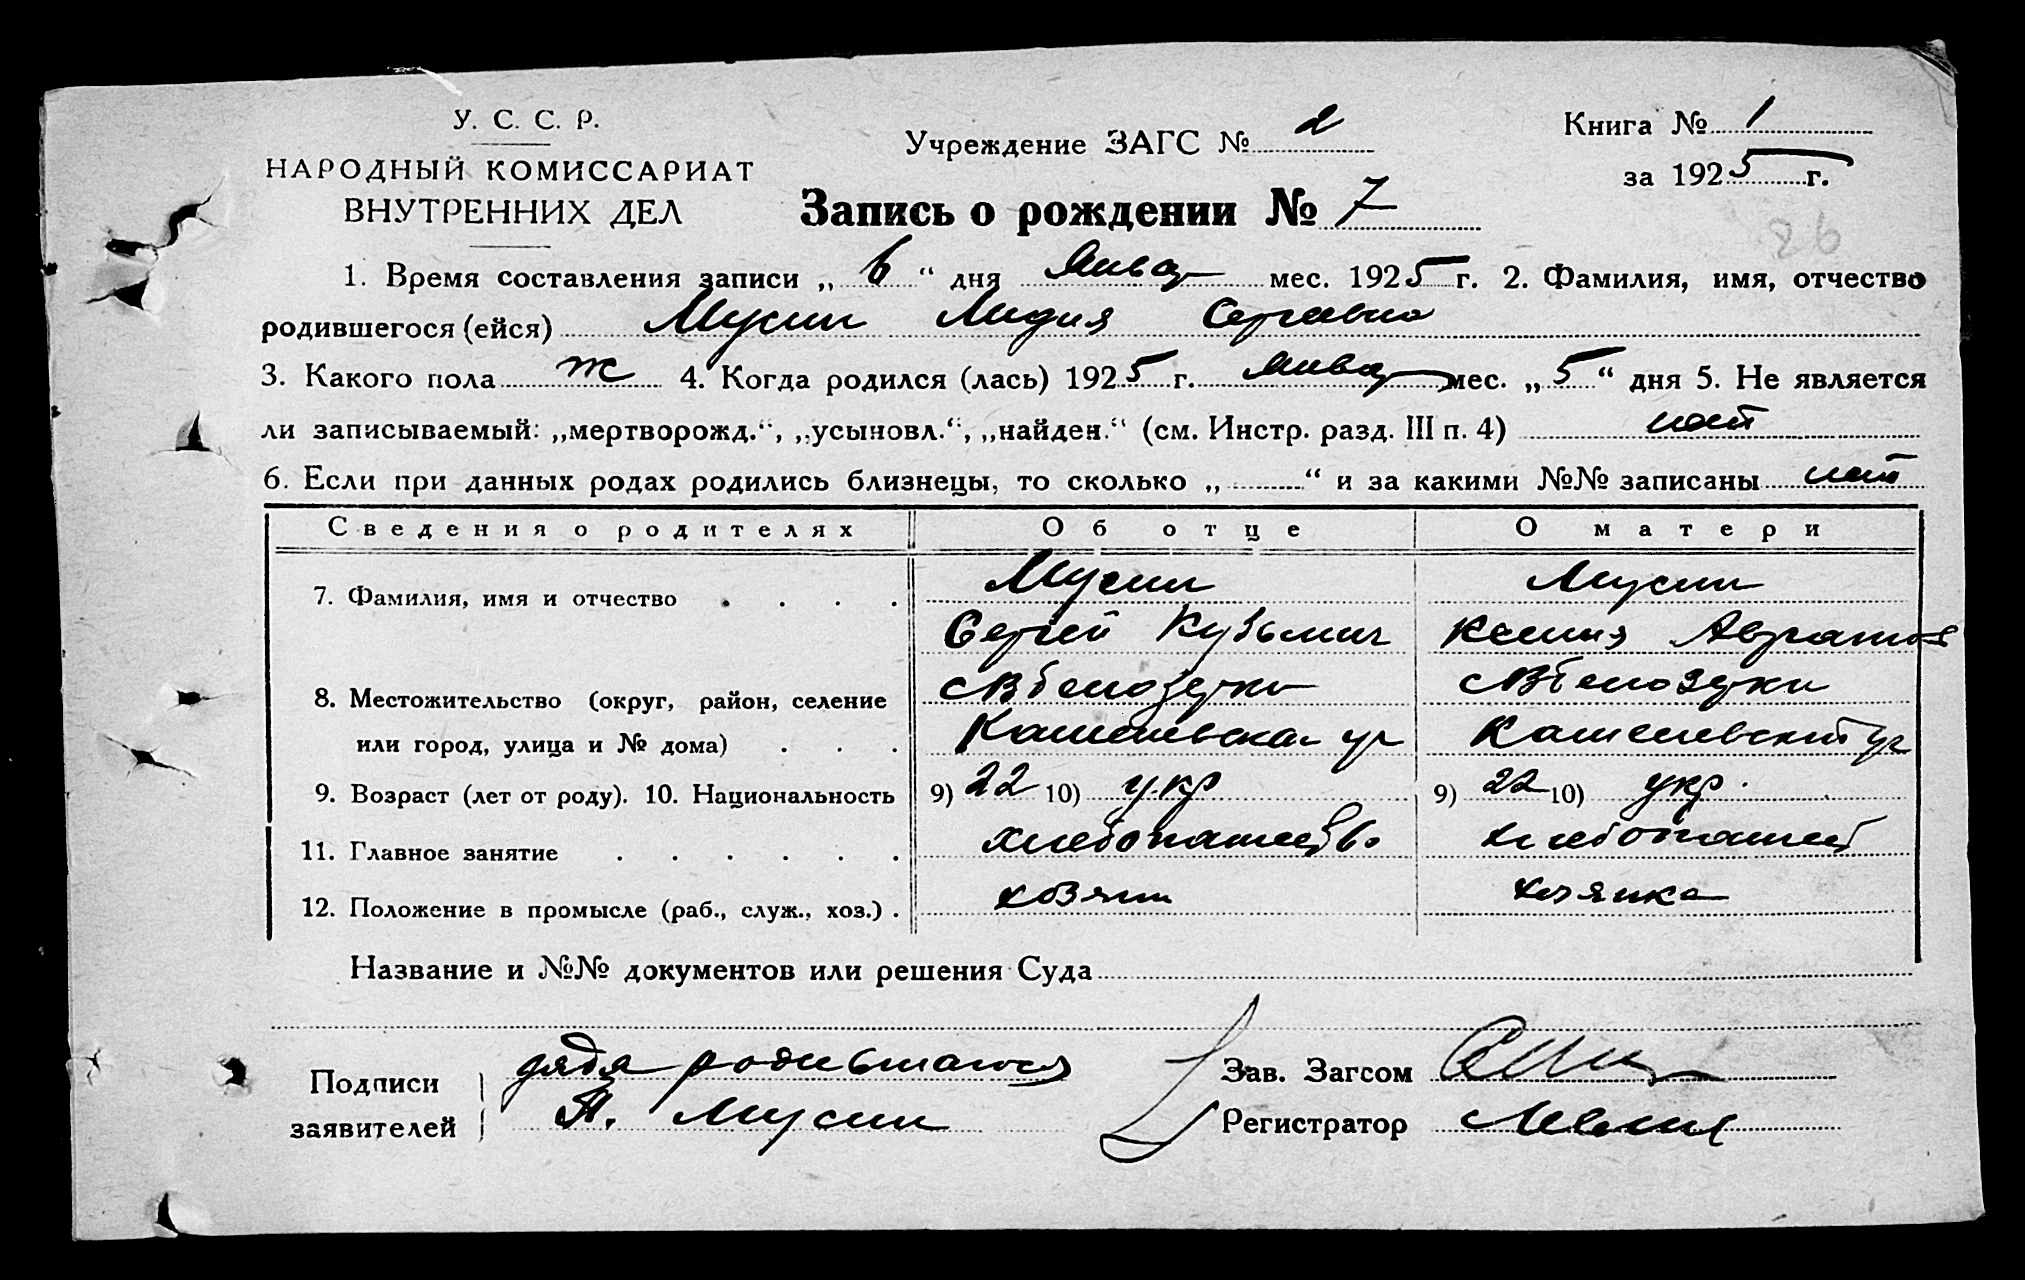 У. С. С. Р.
НАРОДНЫЙ КОМИССАРИАТ
ВНУТРЕННИХ ДЕЛ
Учреждение ЗАГС № 2
Книга № 1
за 1925 г.
Запись о рождении № 7
26
1. Время составления записи „ 6 “ дня Январ мес. 1925 г. 2. Фамилия, имя, отчество
родившегося (ейся) Мусин Лидия Сергеевна
3. Какого пола ж 4. Когда родился (лась) 1925 г. январ мес. „ 5 “ дня 5. Не является
ли записываемый: „мертворожд.“, „усыновл.“, „найден.“ (см. Инстр. разд. III п. 4) нет
6. Если при данных родах родились близнецы, то сколько „ “ и за какими №№ записаны нет
Сведения о родителях Об отце О матери
7. Фамилия, имя и отчество Мусин Мусин
Сергей Кузьмич Ксения
8. Местожительство (округ, район, селение
или город, улица и № дома)
9. Возраст (лет от роду). 10. Национальность 9) 22 10) укр 9) 22 10) укр.
11. Главное занятие хлебопашество хлебопашест
12. Положение в промысле (раб., служ., хоз.) хозяин хозяйка
Название и №№ документов или решения Суда
Подписи заявителей
дядя родившейся
П. Мусин
Зав. Загсом
Регистратор